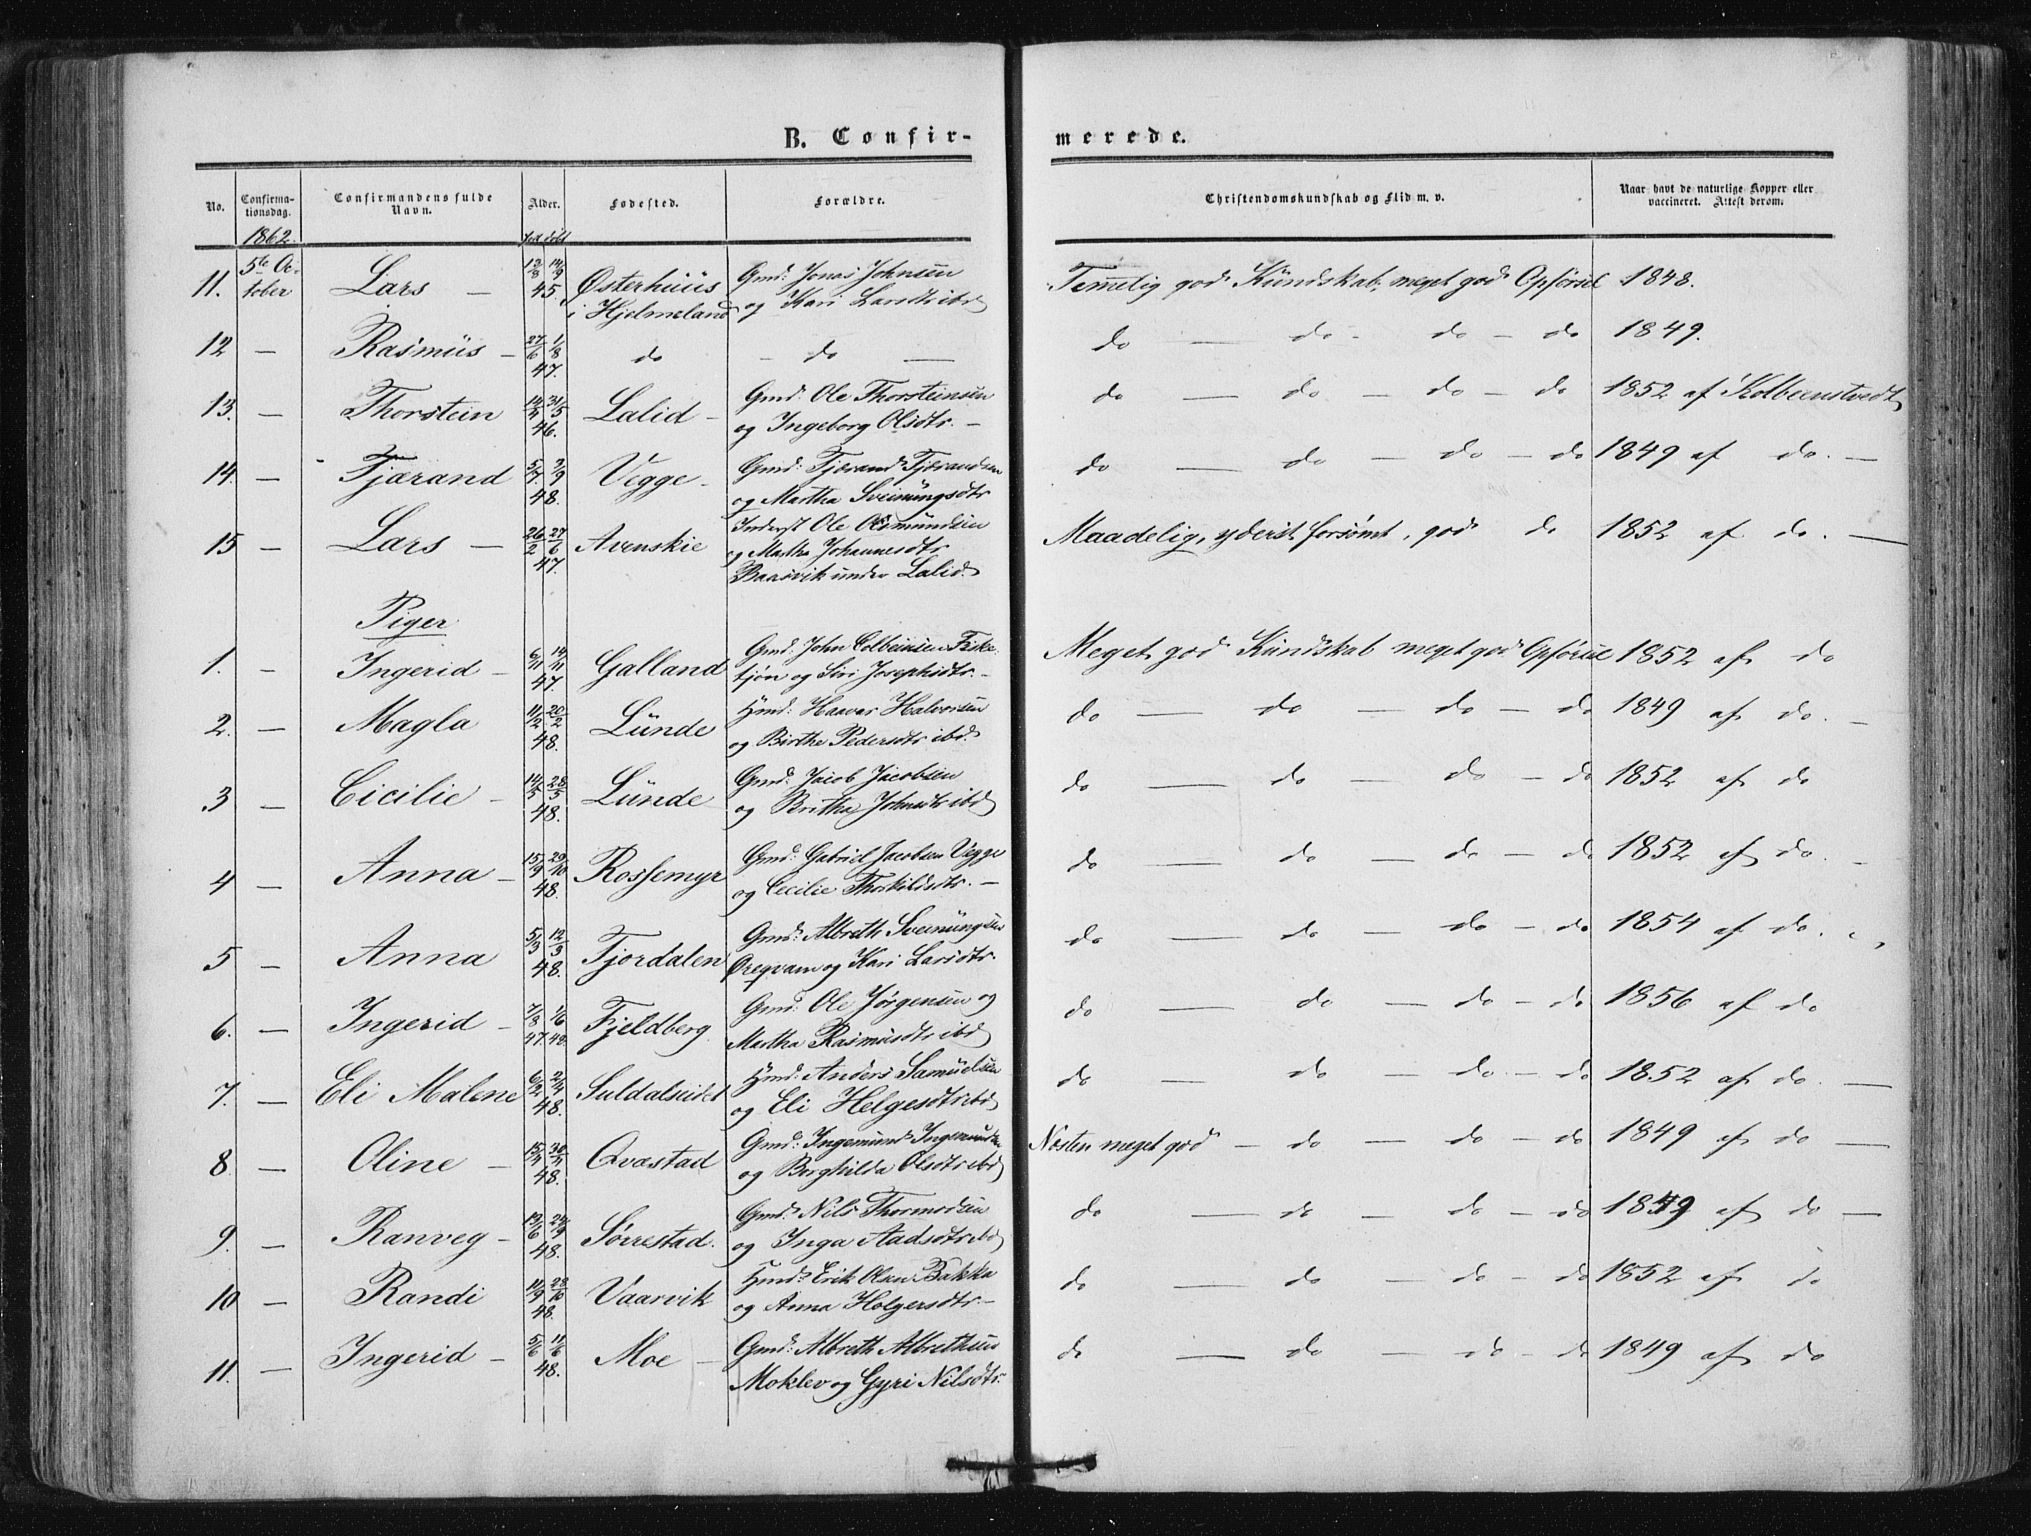 B. Confir-
merede.
No. Confirma-tionsdag. Confirmandens fulde Navn. Alder. Fødested. Forældre. Christendomskundskab og Flid m. v. Naar havt de naturlige Kopper eller vaccineret. Attest derom.
1862. født døbt
11. 5te October Lars — 13/8 14/9 45. Østerhuus i Hjelmeland Gmd: Jonas Johnsen og Kari Larsdtr ibd Temelig god Kundskab, meget god Opførsel 1848.
12 — Rasmus — 27/6 1/8 47. do - do — do — do - do — do 1849.
13. — Thorstein 14/4 31/5 46. Lalid - Gmd. Ole Thorsteinsen og Ingeborg Olsdtr. — do — do — do — do 1852 af Kolbeenstvedt
14. — Tjærand 5/7 9/9 48. Vegge - Gmd: Tjærand Tjærandsen og Martha Sveinungsdtr do — do — do — do 1849 af do. —
15 — Lars — 26/2 27/6 47. Avenskie Inderst Ole Osmundsen og Martha Johannesdtr Baasvik under Lalid. Maadelig, yderst forsømt, god do 1852 af do. —
Piger
1. — Ingerid — 6/11 14/11 47. Galland Gmd: John Colbeinsen Fisketjøn og Siri Josephsdtr. — Meget god Kundskab meget god Opførsel 1852 af do
2. — Magla 11/2 20/2 48. Lunde Gmd: Haavar Halvorsen og Birthe Pedersdtr ibd. do — do — do — do 1849 af do. —
3 — Cicilie — 14/5 28/5 48. Lunde Gmd: Jacob Jacobsen og Britha Johnsdtr ibd do — do — do — do 1852 af do
4 — Anna — 15/9 29/10 48. Rossemyr Gmd: Gabriel Jacobsen Vegge og Cecilie Thorkildsdtr. — do — do — do — do 1852 af do. —
5 — Anna 5/3 12/3 48. Fjordalen Gmd: Albreth Sveinungsen Øreqvam og Kari Larsdtr. do — do — do — do 1854 af do.
6. — Ingerid — 7/8 47. 1/6 48. Fjeldberg Gmd: Ole Jørgensen og Martha Rasmusdtr ibd do — do — do — do 1856 af do
7. — Eli Malene 6/2 2/4 48. Suldalseidet Hmd: Anders Samuelsen og Eli Helgesdtr ibd do — do — do — do 1852 af do. —
8 — Oline — 15/4 30/4 48. Qvæstad Gmd: Ingemund Ingemundsen og Borghilda Olsdtr ibd Næsten meget god — do — do — do 1849 af do —
9. — Ranveg — 13/6 24/9 48. Sørrestad. Gmd: Nils Thormodsen og Inga Aadsdtr ibd do — do — do — do 1849 af do —
10 — Randi 14/9 28/10 48. Vaarvik Hmd: Erik Olsen Bakka og Anna Holgersdtr — do — do — do — do 1852 af do
11. — Ingerid — 5/6 11/6 48. Moe — Gmd: Albreth Albrethsen Moklev og Gyri Nilsdtr. do — do — do — do 1849 af do